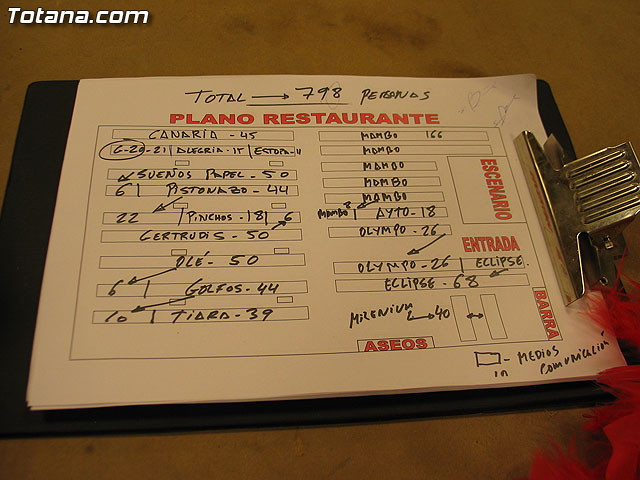 Totana.com
TOTAL → 798 PERSONAS
PLANO RESTAURANTE
CANARIA - 45
6-20-21 | ALEGRIA - 15 | ESTOPA - 11
SUEÑOS PAPEL - 50
6 | PISTONAZO - 44
22 | PINCHOS - 18 | 6
GERTRUDIS - 50
OLE - 50
6 | GOLFOS - 44
10 | TIARA - 39
MAMBO 166
MAMBO
MAMBO
MAMBO
MAMBO
MAMBO 8 | AYTO - 18
OLYMPO - 26
OLYMPO - 26 | ECLIPSE.
ECLIPSE - 68
MILENIUM → 40
ESCENARIO
ENTRADA
BARRA
ASEOS
- MEDIOS
COMUNICACIÓN